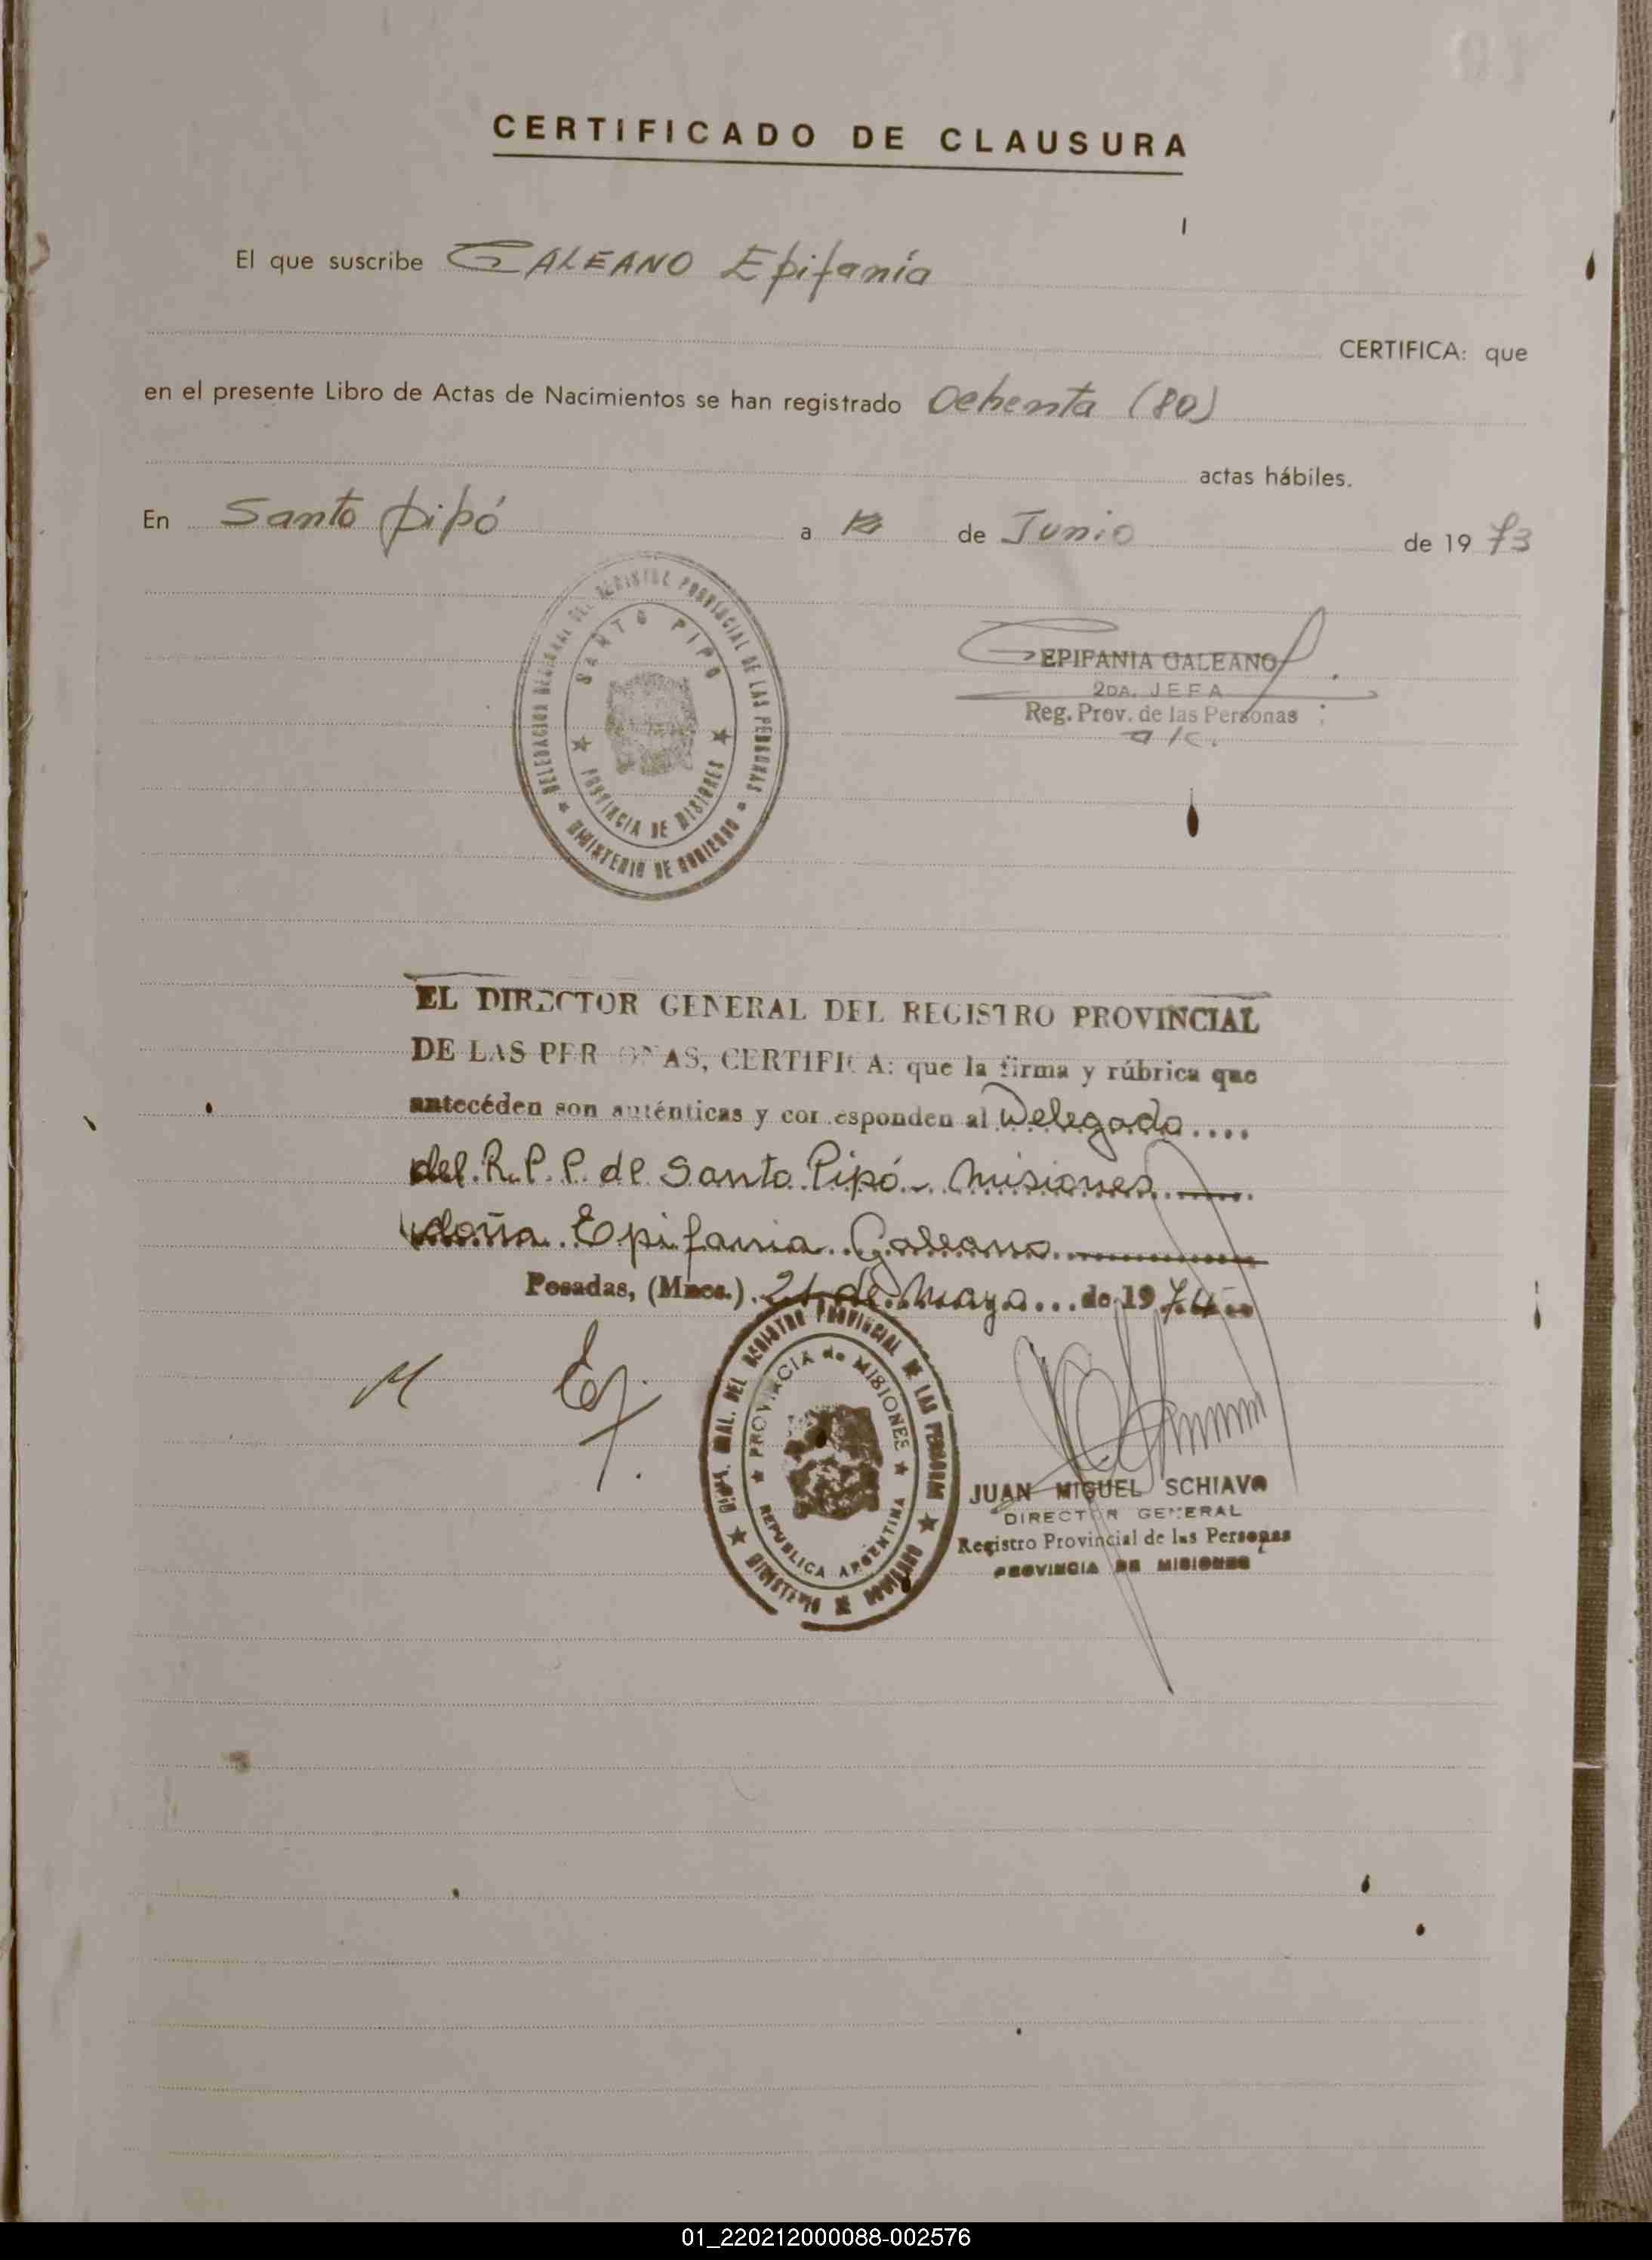 CERTIFICADO DE CLAUSURA
El que suscribe GALEANO Epifanía
CERTIFICA: que
en el presente Libro de Actas de Nacimientos se han registrado Ochenta (80)
actas hábiles.
En Santo Pipó a de Junio de 1973
DELEGACION REGIONAL DEL REGISTRO PROVINCIAL DE LAS PERSONAS
SANTO PIPO
PROVINCIA DE MISIONES
MINISTERIO DE GOBIERNO
EPIFANIA GALEANO
2DA. JEFA
Reg. Prov. de las Personas
a/c.
EL DIRECTOR GENERAL DEL REGISTRO PROVINCIAL
DE LAS PERSONAS, CERTIFICA: que la firma y rúbrica que
antecéden son auténticas y corresponden al Delegado....
del R.P.P. de Santo Pipó - Misiones
doña Epifania Galeano
Posadas, (Mnes.) 21 de Mayo... de 1974
DIR. GRAL. DEL REGISTRO PROVINCIAL DE LAS PERSONAS
PROVINCIA de MISIONES
REPUBLICA ARGENTINA
MINISTERIO DE GOBIERNO
JUAN MIGUEL SCHIAVO
DIRECTOR GENERAL
Registro Provincial de las Personas
PROVINCIA DE MISIONES
01_220212000088-002576